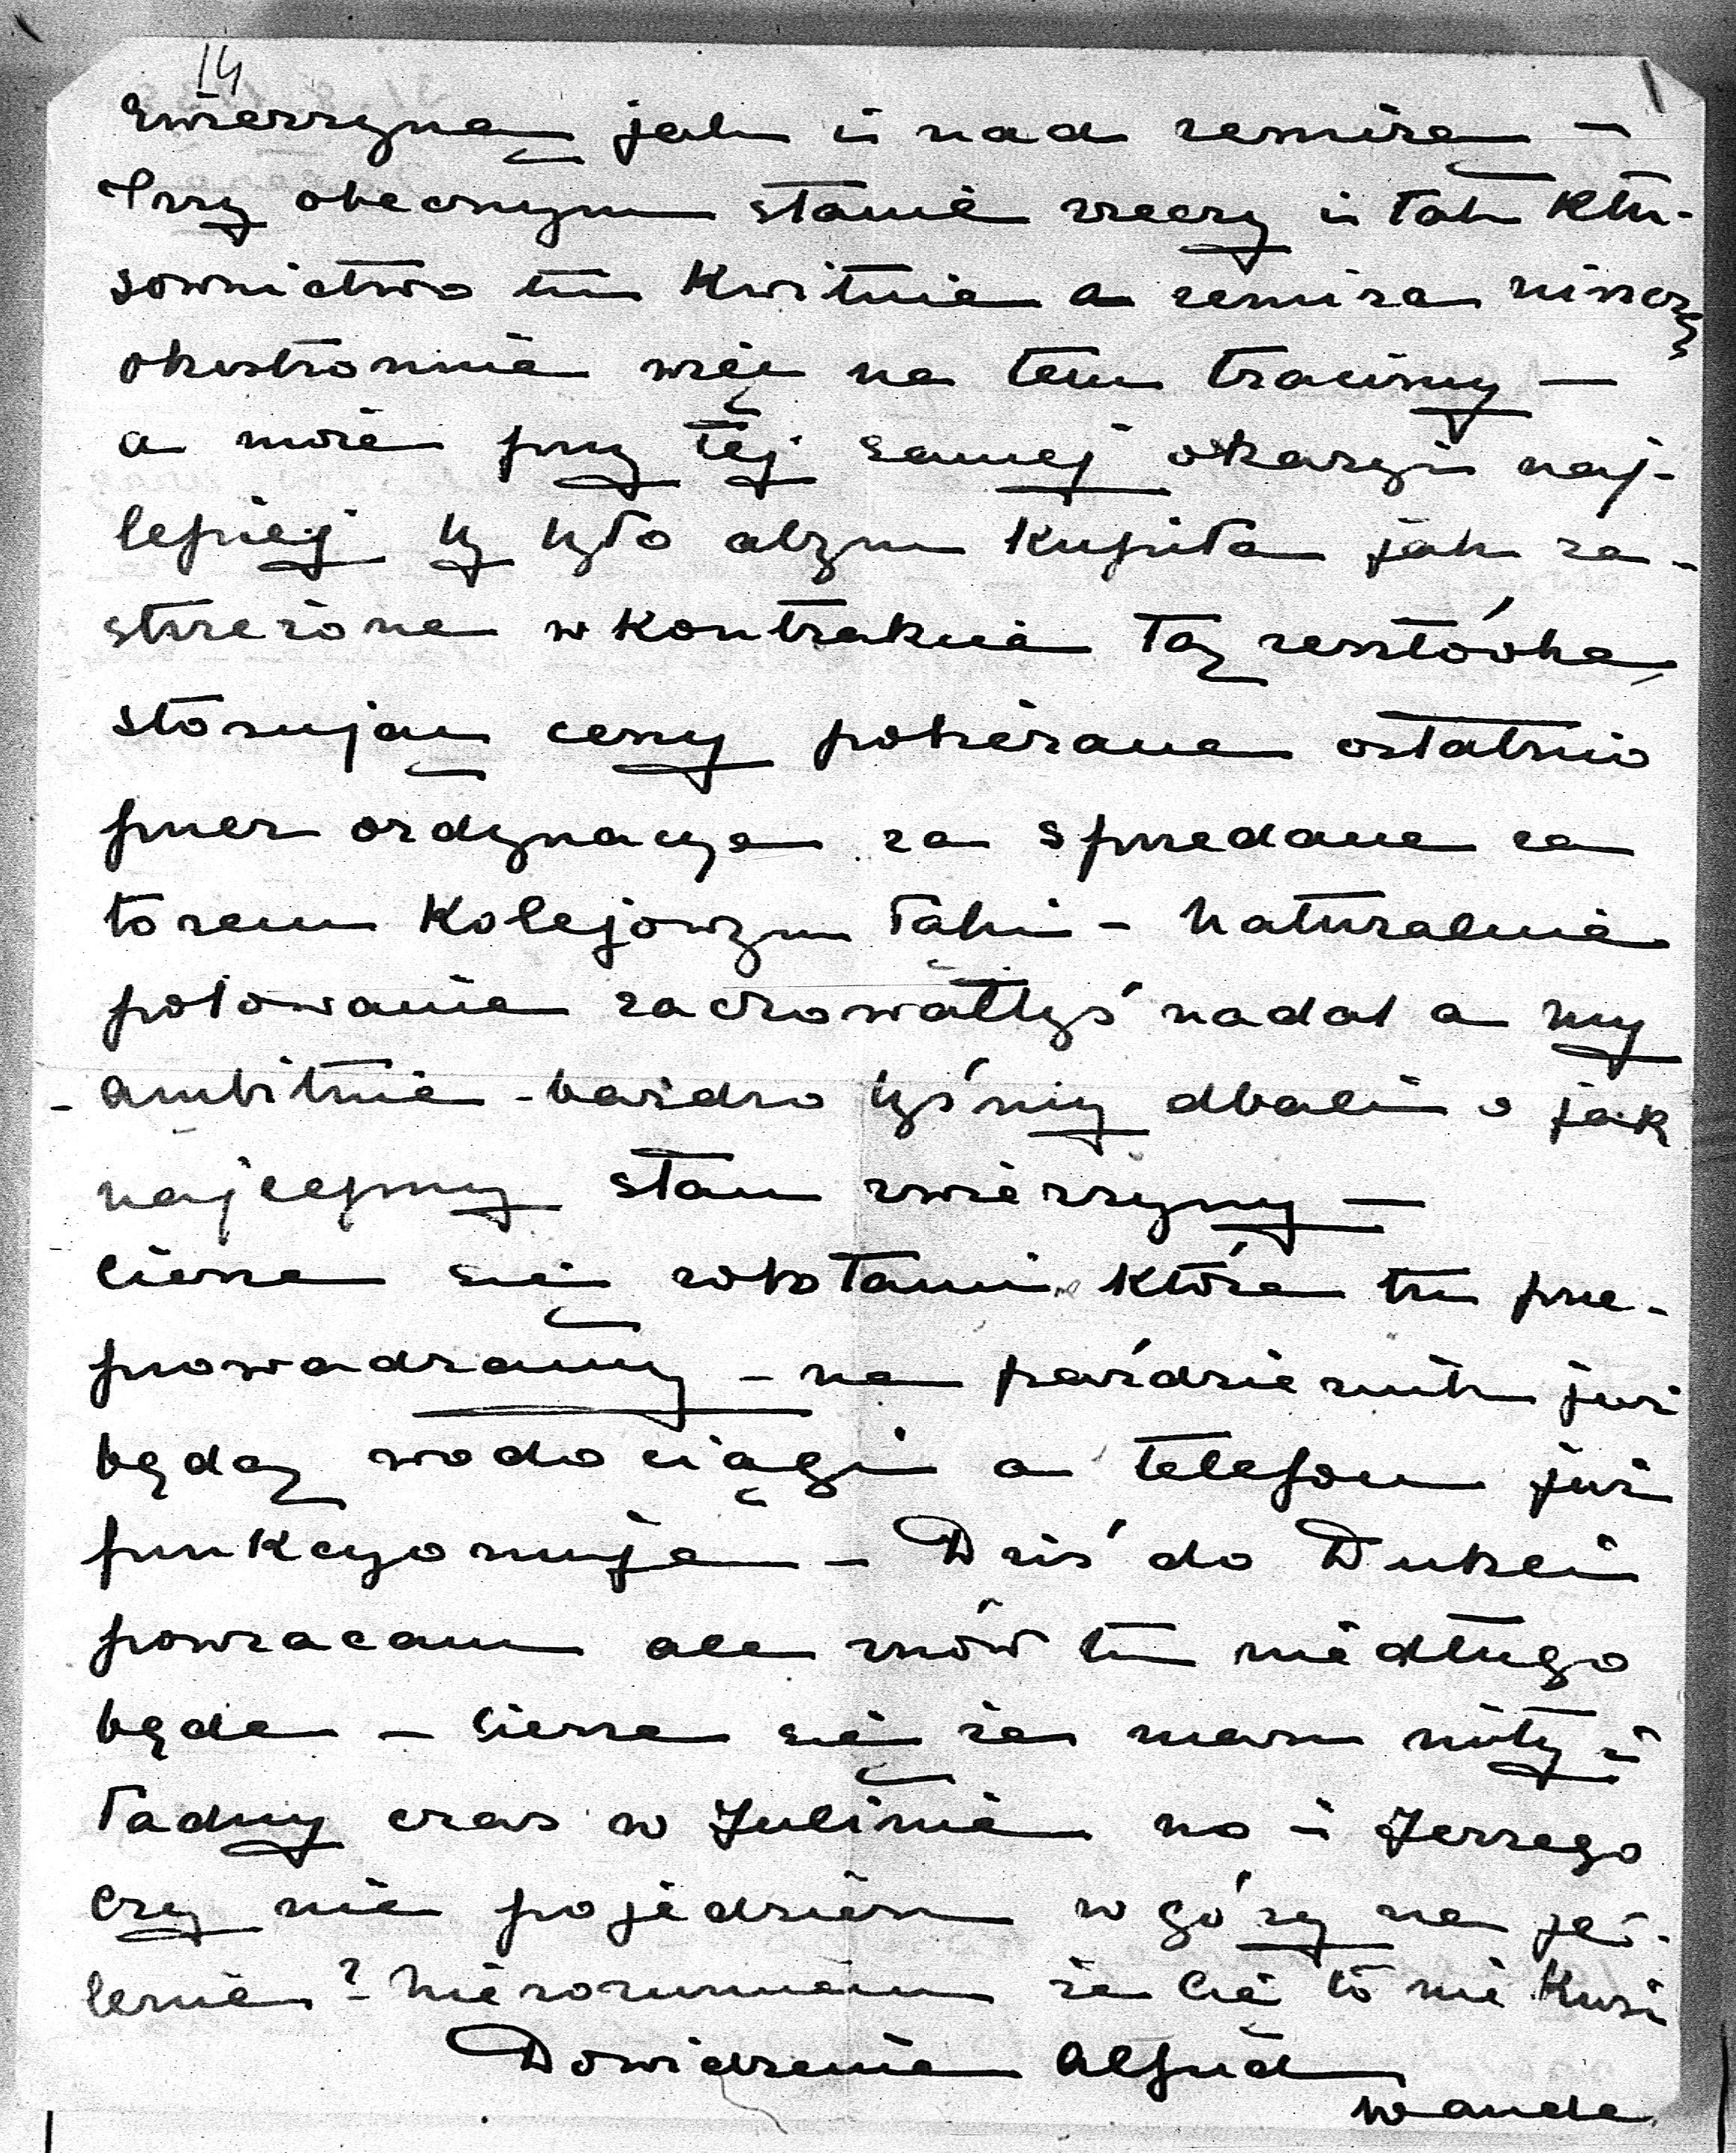 14
zwierzyną jak i nad remizą –
Przy obecnym stanie rzeczy i tak kłu-
sownictwo tu kwitnie a remiza niszczy
obustronnie więc na tem tracimy –
a może przy tej samej okazyi naj-
lepiej by było abym kupiła jak za-
strzeżone w kontrakcie tą resztówkę
stosując ceny pobierane ostatnio
przez ordynacye za sprzedane za
torem kolejowym łaki – Naturalnie
polowanie zachowałbyś nadal a my
– ambitnie – bardzo byśmy dbali o jak
najlepszy stan zwierzyny –
Cieszę się robotami które tu prze-
prowadzamy – na październik już
będą wodociągi a telefon już
funkcyonuje – Dziś do Dukli
powracam ale znów tu niedługo
będę – Cieszę się że masz miły i
ładny czas w Julinie no i Jerzego
Czy nie pojedziesz w góry na je-
lenie? – Nierozumiem że Cię to nie kusi
Dowidzenia Alfred
Wanda